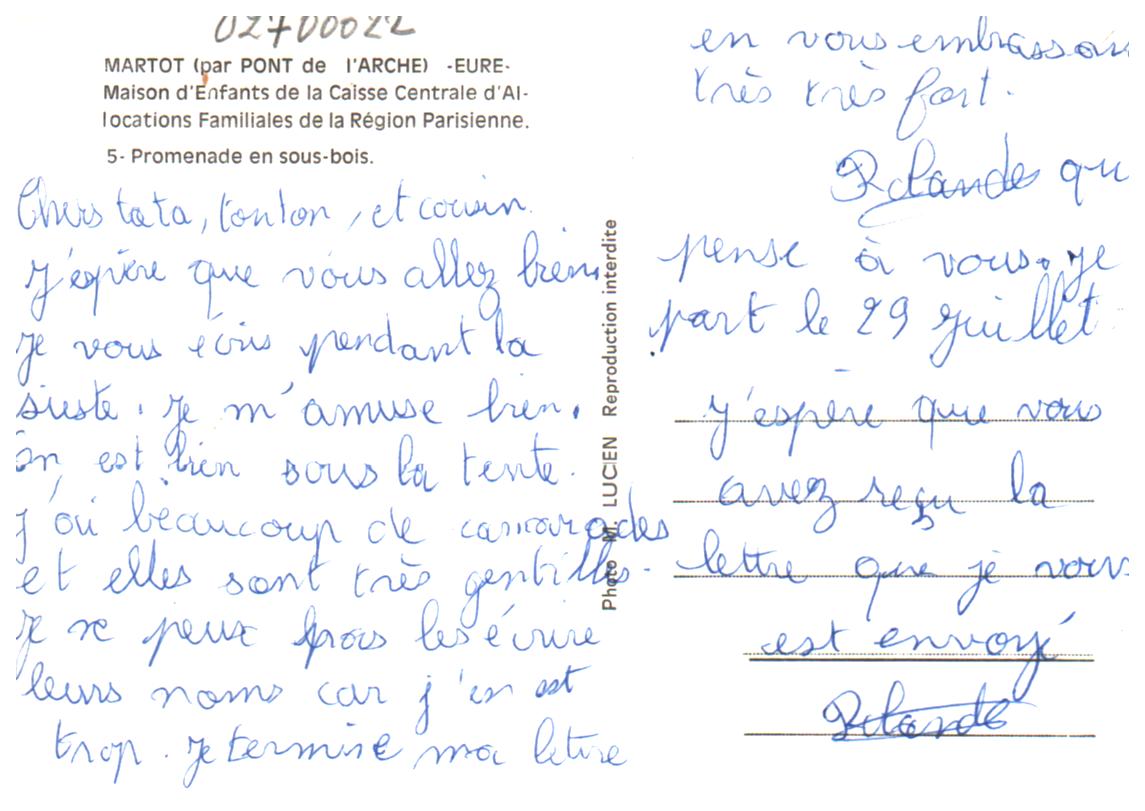 02700022
MARTOT (par PONT de l'ARCHE) -EURE-
Maison d'Enfants de la Caisse Centrale d'Al-
locations Familiales de la Région Parisienne.
5- Promenade en sous-bois.
Chers tata, tonton, et cousin.
J'espère que vous allez bien.
je vous écris pendant la
sieste. Je m'amuse bien.
on est bien sous la tente.
j'ai beaucoup de camarades
et elles sont très gentilles.
Je ne peux pas les écrire
leurs noms car j'en est
trop. Je termine ma lettre
Photo M. LUCIEN Reproduction interdite
en vous embrassant
très très fort.
Rolande qui
pense à vous. Je
part le 29 Juillet
j'espère que vous
avez reçu la
lettre que je vous
est envoyé
Rolande